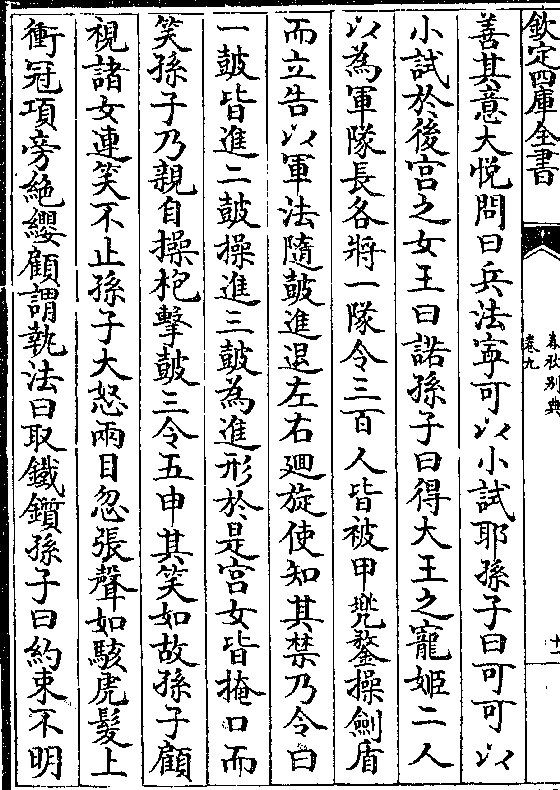 欽定四庫全書
春秋別典
卷九
十
善其意大悅問曰兵法寜可以小試耶孫子曰可可以
小試於後宮之女王曰諾孫子曰得大王之寵姬二人
以為軍隊長各將一隊令三百人皆被甲兠鍪操劍盾
而立告以軍法隨鼓進退左右廻旋使知其禁乃令曰
一鼓皆進二鼓操進三鼓為進形於是宮女皆掩口而
笑孫子乃親自操枹擊鼓三令五申其笑如故孫子顧
視諸女連笑不止孫子大怒兩目忽張聲如駭虎髮上
衝冠項旁絶纓顧謂執法曰取鐵鑕孫子曰約束不明